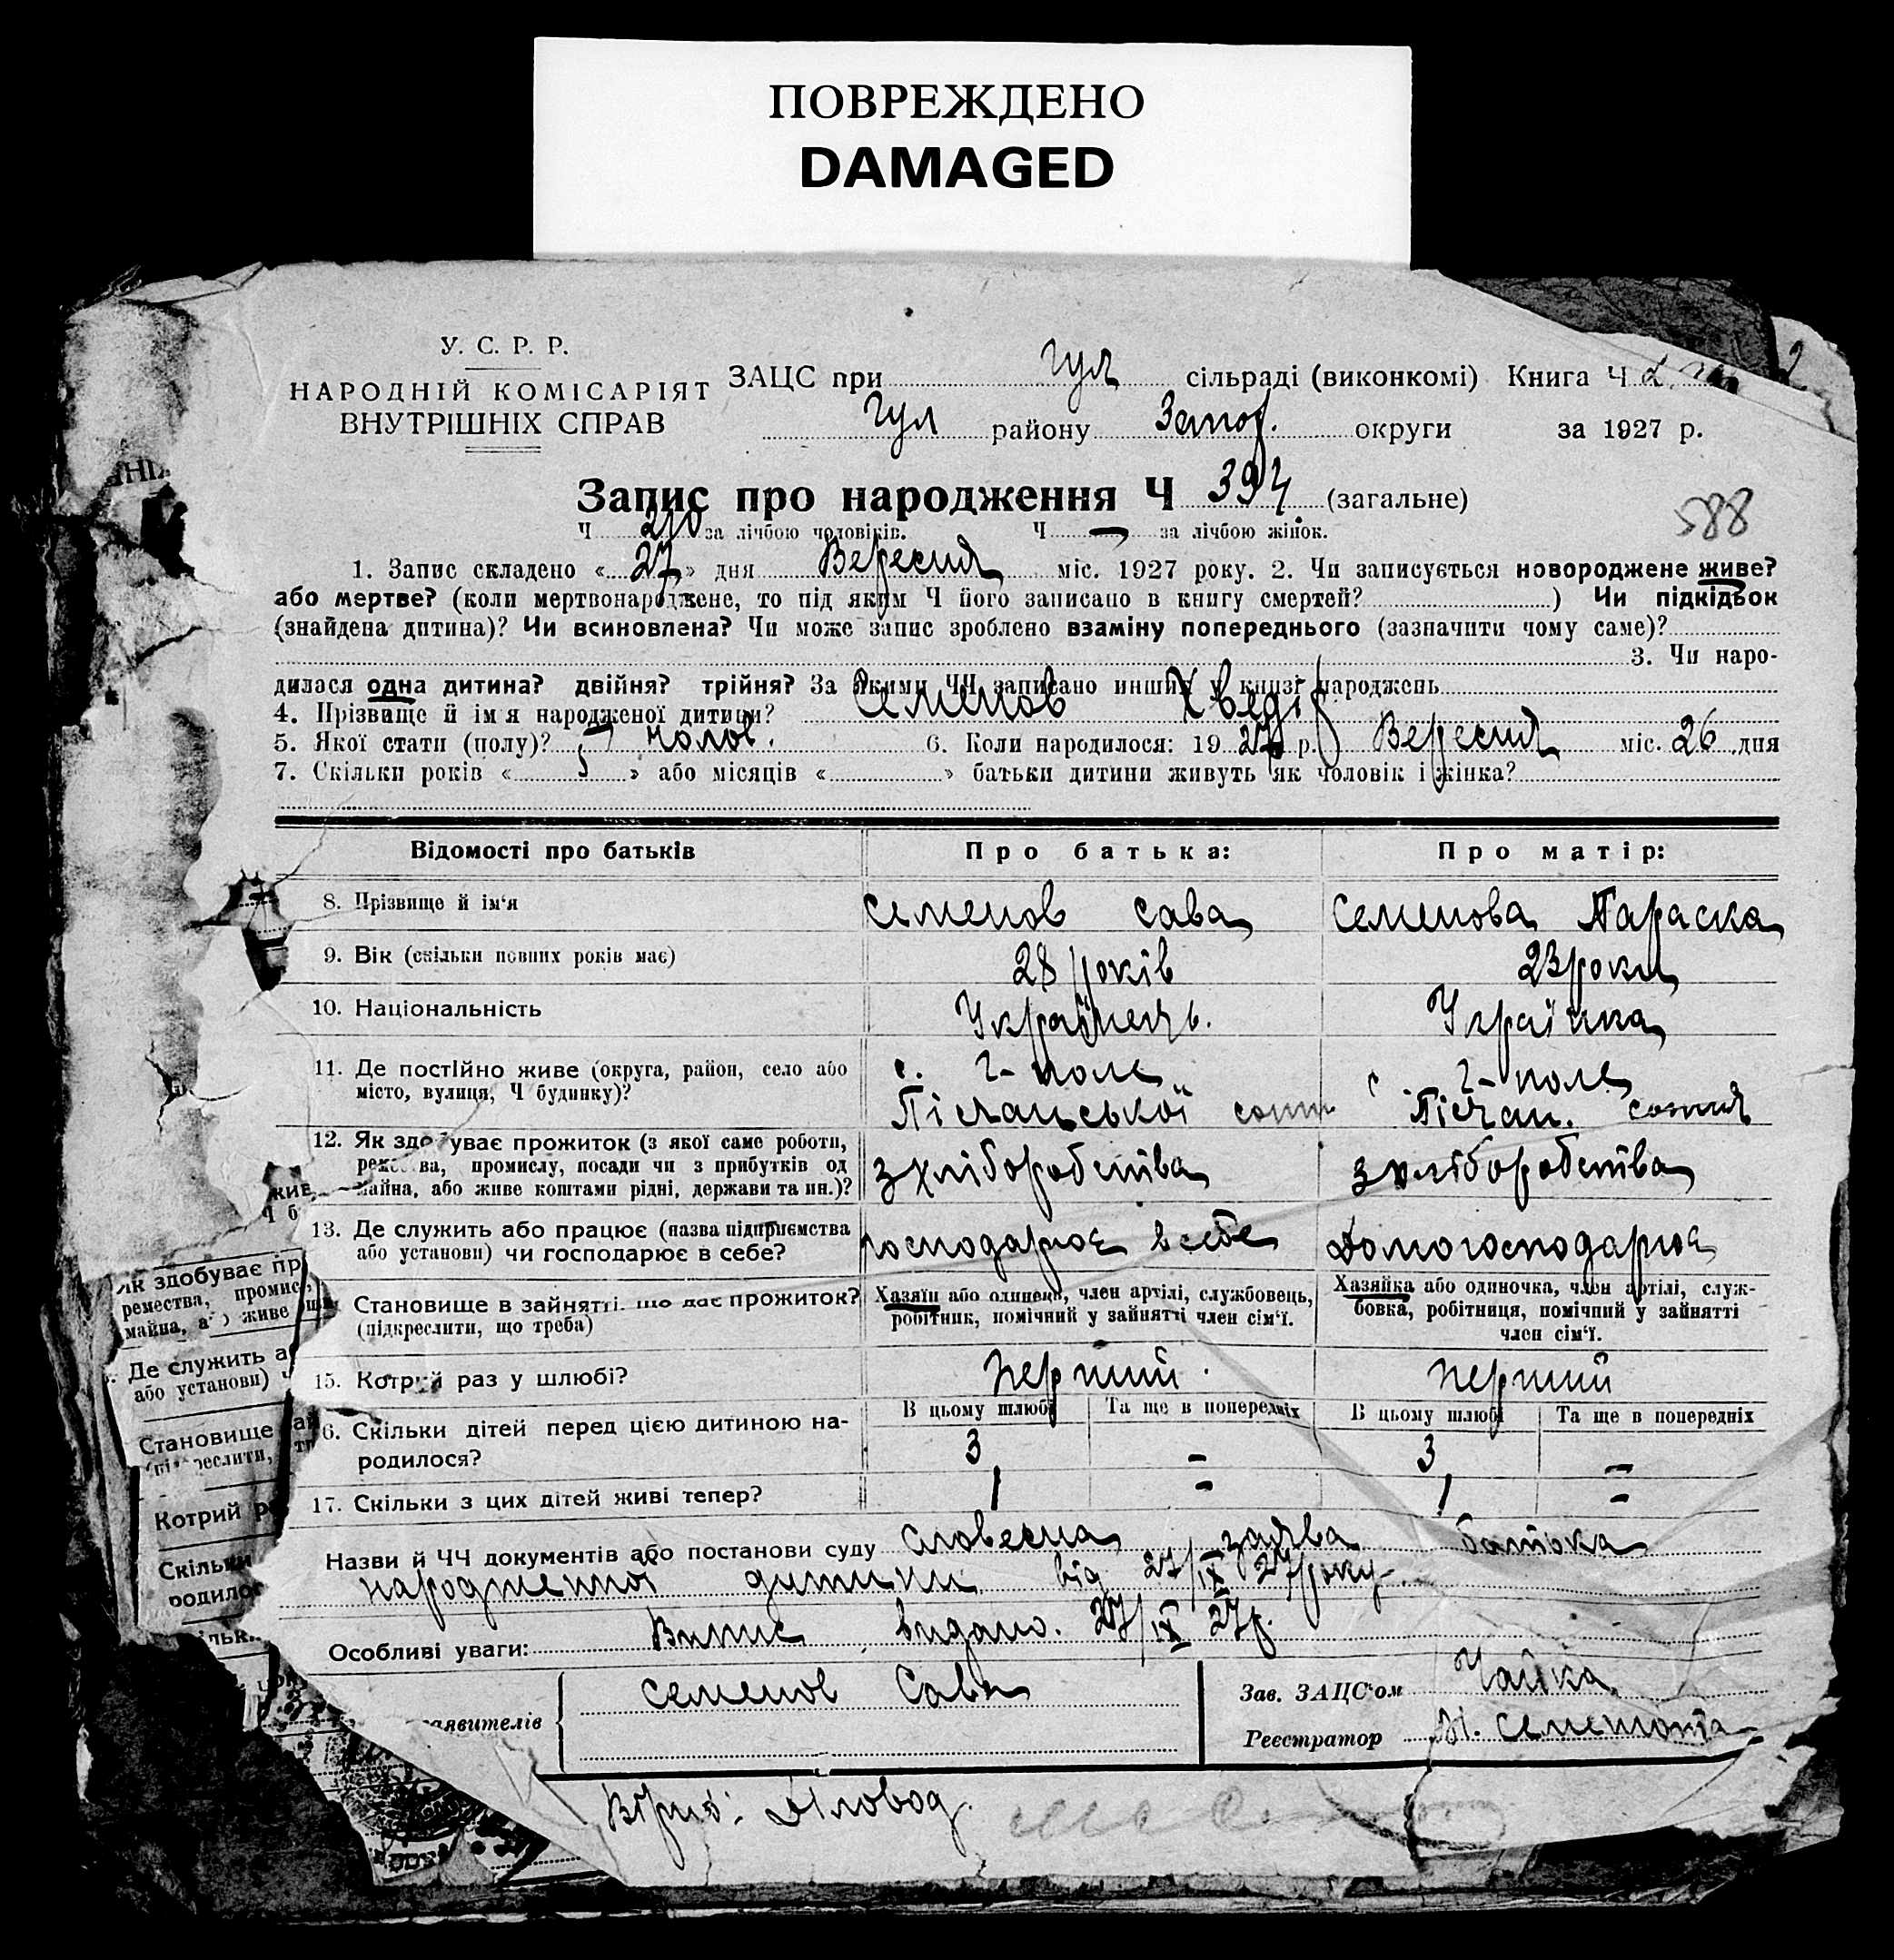 ПОВРЕЖДЕНО
DAMAGED
У. С. Р. Р.
НАРОДНІЙ КОМІСАРІЯТ
ВНУТРІШНІХ СПРАВ
ЗАЦС при Гул сільраді (виконкомі) Книга Ч
Гул району Запор. округи за 1927 р.
Запис про народження Ч 394 (загальне)
588
Ч 210 за лічбою чоловіків. Ч — за лічбою жінок.
1. Запис складено « 27 » дня Вересня міс. 1927 року. 2. Чи записується новороджене живе?
або мертве? (коли мертвонароджене, то під яким Ч його записано в книгу смертей? ) Чи підкідьок
(знайдена дитина)? Чи всиновлена? Чи може запис зроблено взаміну попереднього (зазначити чому саме)?
3. Чи наро-
дилася одна дитина? двійня? трійня? За якими ЧЧ записано инших у книзі народжень
4. Прізвище й ім я народженої дитини? Семенов Хведір
5. Якої стати (полу)? чолов. 6. Коли народилося: 19 27 р. Вересня міс. 26 дня
7. Скільки років « 5 » або місяців « » батьки дитини живуть як чоловік і жінка?
Відомості про батьків Про батька: Про матір:
8. Прізвище й ім‘я Семенов Сава Семенова Параска
9. Вік (скільки повних років має) 28 років 23 роки
10. Національність Українець. Українка
11. Де постійно живе (округа, район, село або с. Г-поле с. Г-поле
місто, вулиця, Ч будинку)? Пісчанської сотн Пісчан. сотня
12. Як здобуває прожиток (з якої саме роботи,
ремества, промислу, посади чи з прибутків од з хліборобства з хліборобства
майна, або живе коштами рідні, держави та ин.)?
13. Де служить або працює (назва підприємства господарює в себе Домогосподарює
або установи) чи господарює в себе?
Становище в зайнятті, що дає прожиток? Хазяїн або одинець, член артілі, службовець, Хазяйка або одиночка, член артілі, служ-
(підкреслити, що треба) робітник, помічний у зайнятті член сім‘ї. бовка, робітниця, помічний у зайнятті
член сім‘ї.
15. Котрий раз у шлюбі? перший. перший
В цьому шлюбі Та ще в попередніх В цьому шлюбі Та ще в попередніх
6. Скільки дітей перед цією дитиною на- 3 - 3 -
родилося?
17. Скільки з цих дітей живі тепер? 1 - 1 -
Назви й ЧЧ документів або постанови суду Словесна заява батька
народженної дитини від 27/IX 27 року.
Особливі уваги: Випис видано. 27/IX 27 р.
Семенов Сава
аявителів
Зав. ЗАЦС‘ом Чайка
Реєстратор
Вірно: Діловод
як здобуває пр
ремества, промис
майна, а о живе
Де служить а
або установи)
Становище
Котрий р
Скільки
родилос